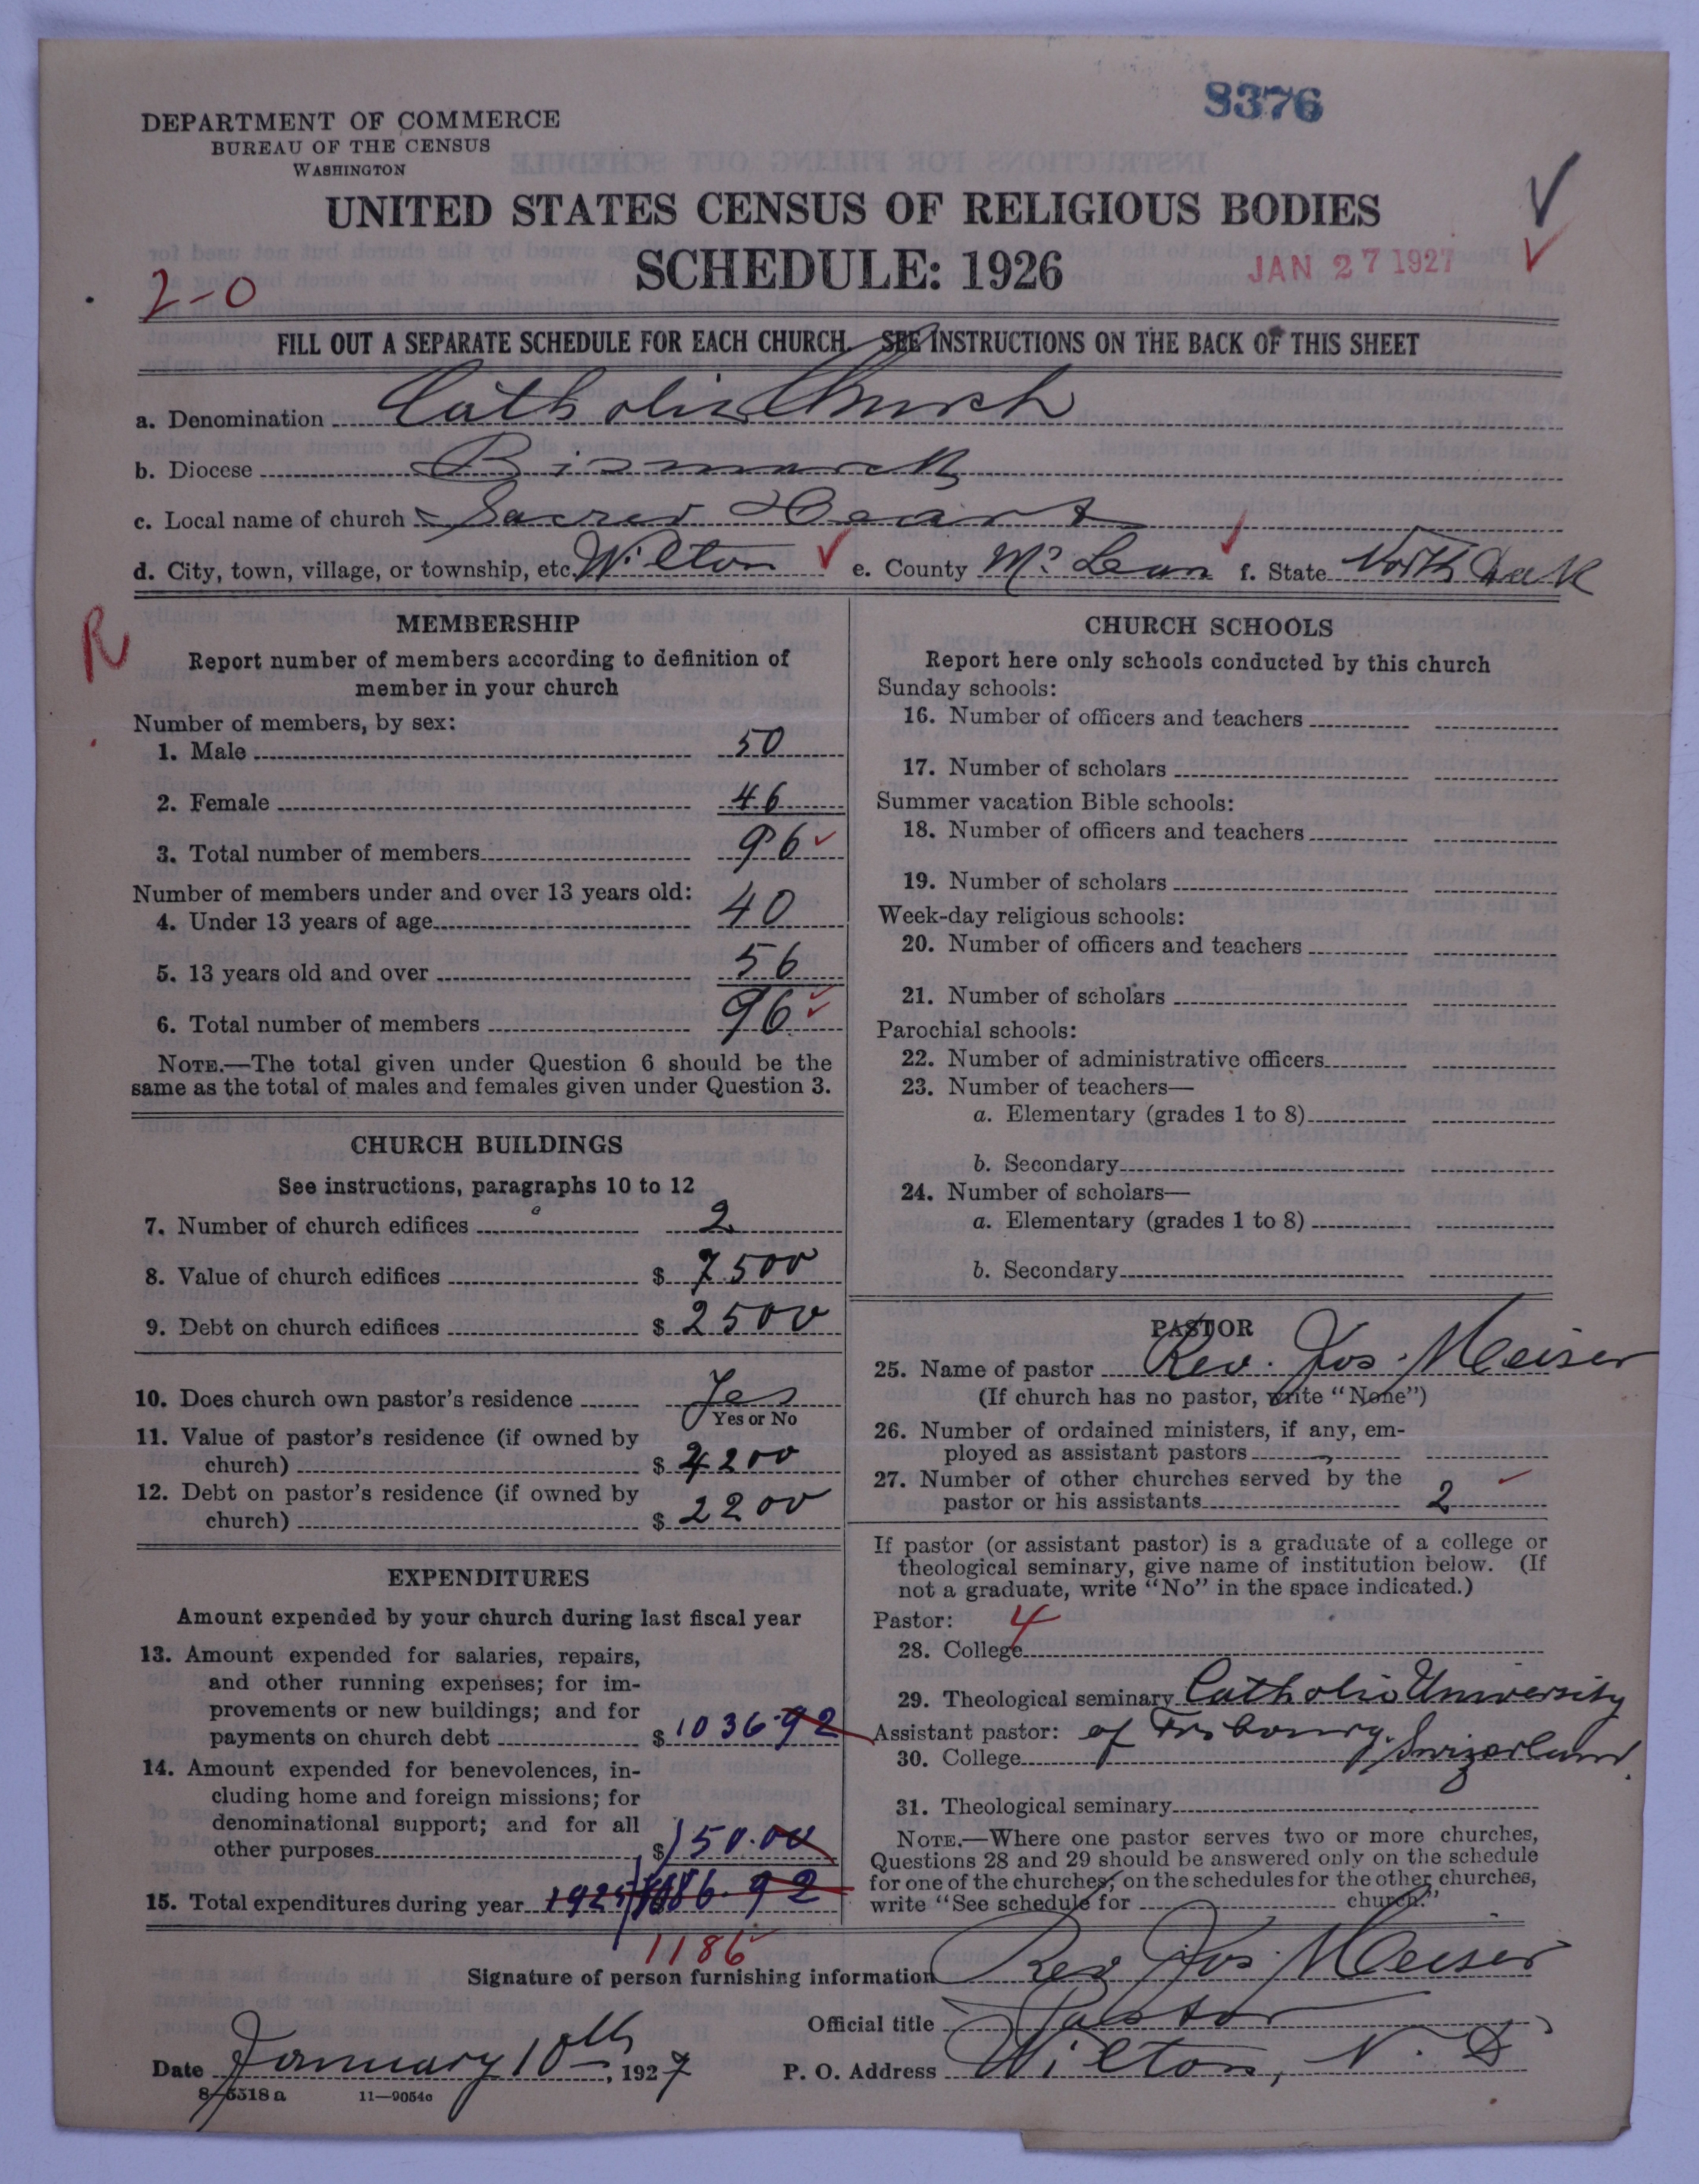 8376
DEPARTMENT OF COMMERCE
BUREAU OF THE CENSUS
WASHINGTON
UNITED STATES CENSUS OF RELIGIOUS BODIES
SCHEDULE: 1926
JAN 27 1927
2-0
FILL OUT A SEPARATE SCHEDULE FOR EACH CHURCH. SEE INSTRUCTIONS ON THE BACK OF THIS SHEET
a. Denomination Catholic Church
b. Diocese Bismarck
c. Local name of church Sacred Heart
d. City, town, village, or township, etc. Wilton e. County McLean f. State North Dak
R
MEMBERSHIP
Report number of members according to definition of
member in your church
Number of members, by sex:
1. Male 50
2. Female 46
3. Total number of members 96
Number of members under and over 13 years old:
4. Under 13 years of age 40
5. 13 years old and over 56
6. Total number of members 96
NOTE.—The total given under Question 6 should be the
same as the total of males and females given under Question 3.
CHURCH BUILDINGS
See instructions, paragraphs 10 to 12
7. Number of church edifices 2
8. Value of church edifices $ 7500
9. Debt on church edifices $ 2500
10. Does church own pastor's residence Yes
Yes or No
11. Value of pastor's residence (if owned by
church) $ 4200
12. Debt on pastor's residence (if owned by
church) $ 2200
EXPENDITURES
Amount expended by your church during last fiscal year
13. Amount expended for salaries, repairs,
and other running expenses; for im-
provements or new buildings; and for
payments on church debt $ 1036.92
14. Amount expended for benevolences, in-
cluding home and foreign missions; for
denominational support; and for all
other purposes $ 150.00
15. Total expenditures during year 1186.92
1186
CHURCH SCHOOLS
Report here only schools conducted by this church
Sunday schools:
16. Number of officers and teachers
17. Number of scholars
Summer vacation Bible schools:
18. Number of officers and teachers
19. Number of scholars
Week-day religious schools:
20. Number of officers and teachers
21. Number of scholars
Parochial schools:
22. Number of administrative officers
23. Number of teachers—
a. Elementary (grades 1 to 8)
b. Secondary
24. Number of scholars—
a. Elementary (grades 1 to 8)
b. Secondary
PASTOR
25. Name of pastor Rev. Jos. Meiser
(If church has no pastor, write "None")
26. Number of ordained ministers, if any, em-
ployed as assistant pastors
27. Number of other churches served by the
pastor or his assistants 2
If pastor (or assistant pastor) is a graduate of a college or
theological seminary, give name of institution below. (If
not a graduate, write "No" in the space indicated.)
Pastor: 4
28. College
29. Theological seminary Catholic University
Assistant pastor: of Fribourg, Swizerland.
30. College
31. Theological seminary
NOTE.—Where one pastor serves two or more churches,
Questions 28 and 29 should be answered only on the schedule
for one of the churches; on the schedules for the other churches,
write "See schedule for church."
Signature of person furnishing information Rev Jos. Meiser
Official title Pastor
Date January 10th, 1927 P. O. Address Wilton, N. D
8-5318a 11-9054c